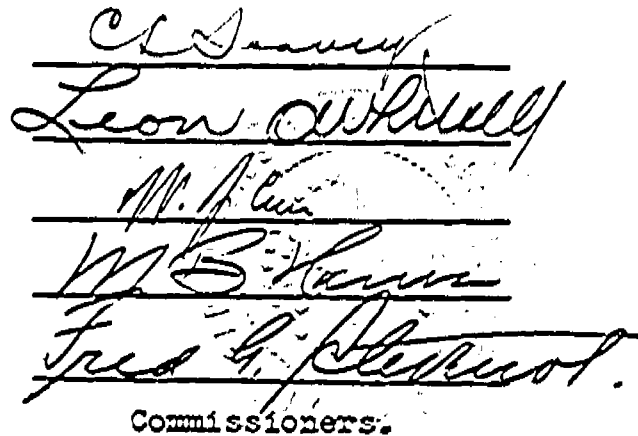 C L Seavey
Leon O Whitsell
W. J. Carr
M B Harris
Fred G. Stevenot.
Commissioners.